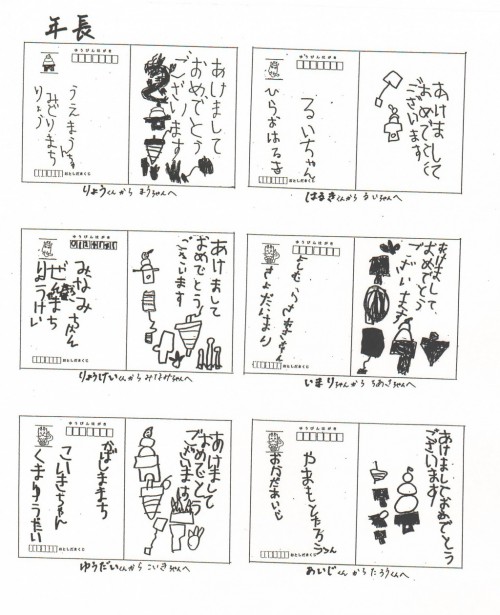 年長
ゆうびんはがき
うえまう
みどりまち
りょう
おとしだまくじ
あけまして
おめでとう
ございます
りょうくんから まうちゃんへ
ゆうびんはがき
るいちゃん
ひらおはるき
おとしだまくじ
あけまして
おめでとう
ございます
はるきくんから るいちゃんへ
ゆうびんはがき
みなみちゃん
りょうけい
おとしだまくじ
あけまして
おめでとう
ございます
りょうけいくんから みなみちゃんへ
ゆうびんはがき
おとしだまくじ
あけまして
おめでとう
ございます
いまりちゃんから ちあきちゃんへ
ゆうびんはがき
こいきちゃん
くまゆうだい
おとしだまくじ
あけまして
おめでとう
ございます
ゆうだいくんから こいきちゃんへ
ゆうびんはがき
やまもとたろうくん
おかだあいじ
おとしだまくじ
あけましておめでとう
ございます
あいじくんから たろうくんへ